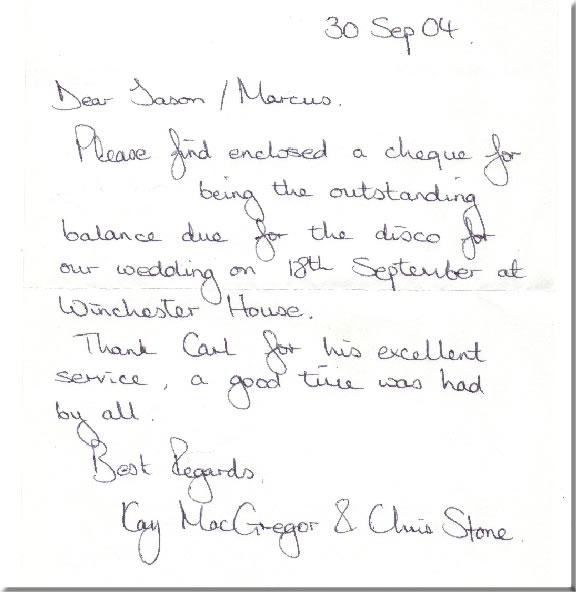 30 Sep 04.
Dear Jason / Marcus.
Please find enclosed a cheque for
being the outstanding
balance due for the disco for
our wedding on 18th September at
Winchester House.
Thank Carl for his excellent
service, a good time was had
by all.
Best Regards,
Kay MacGregor & Chris Stone.